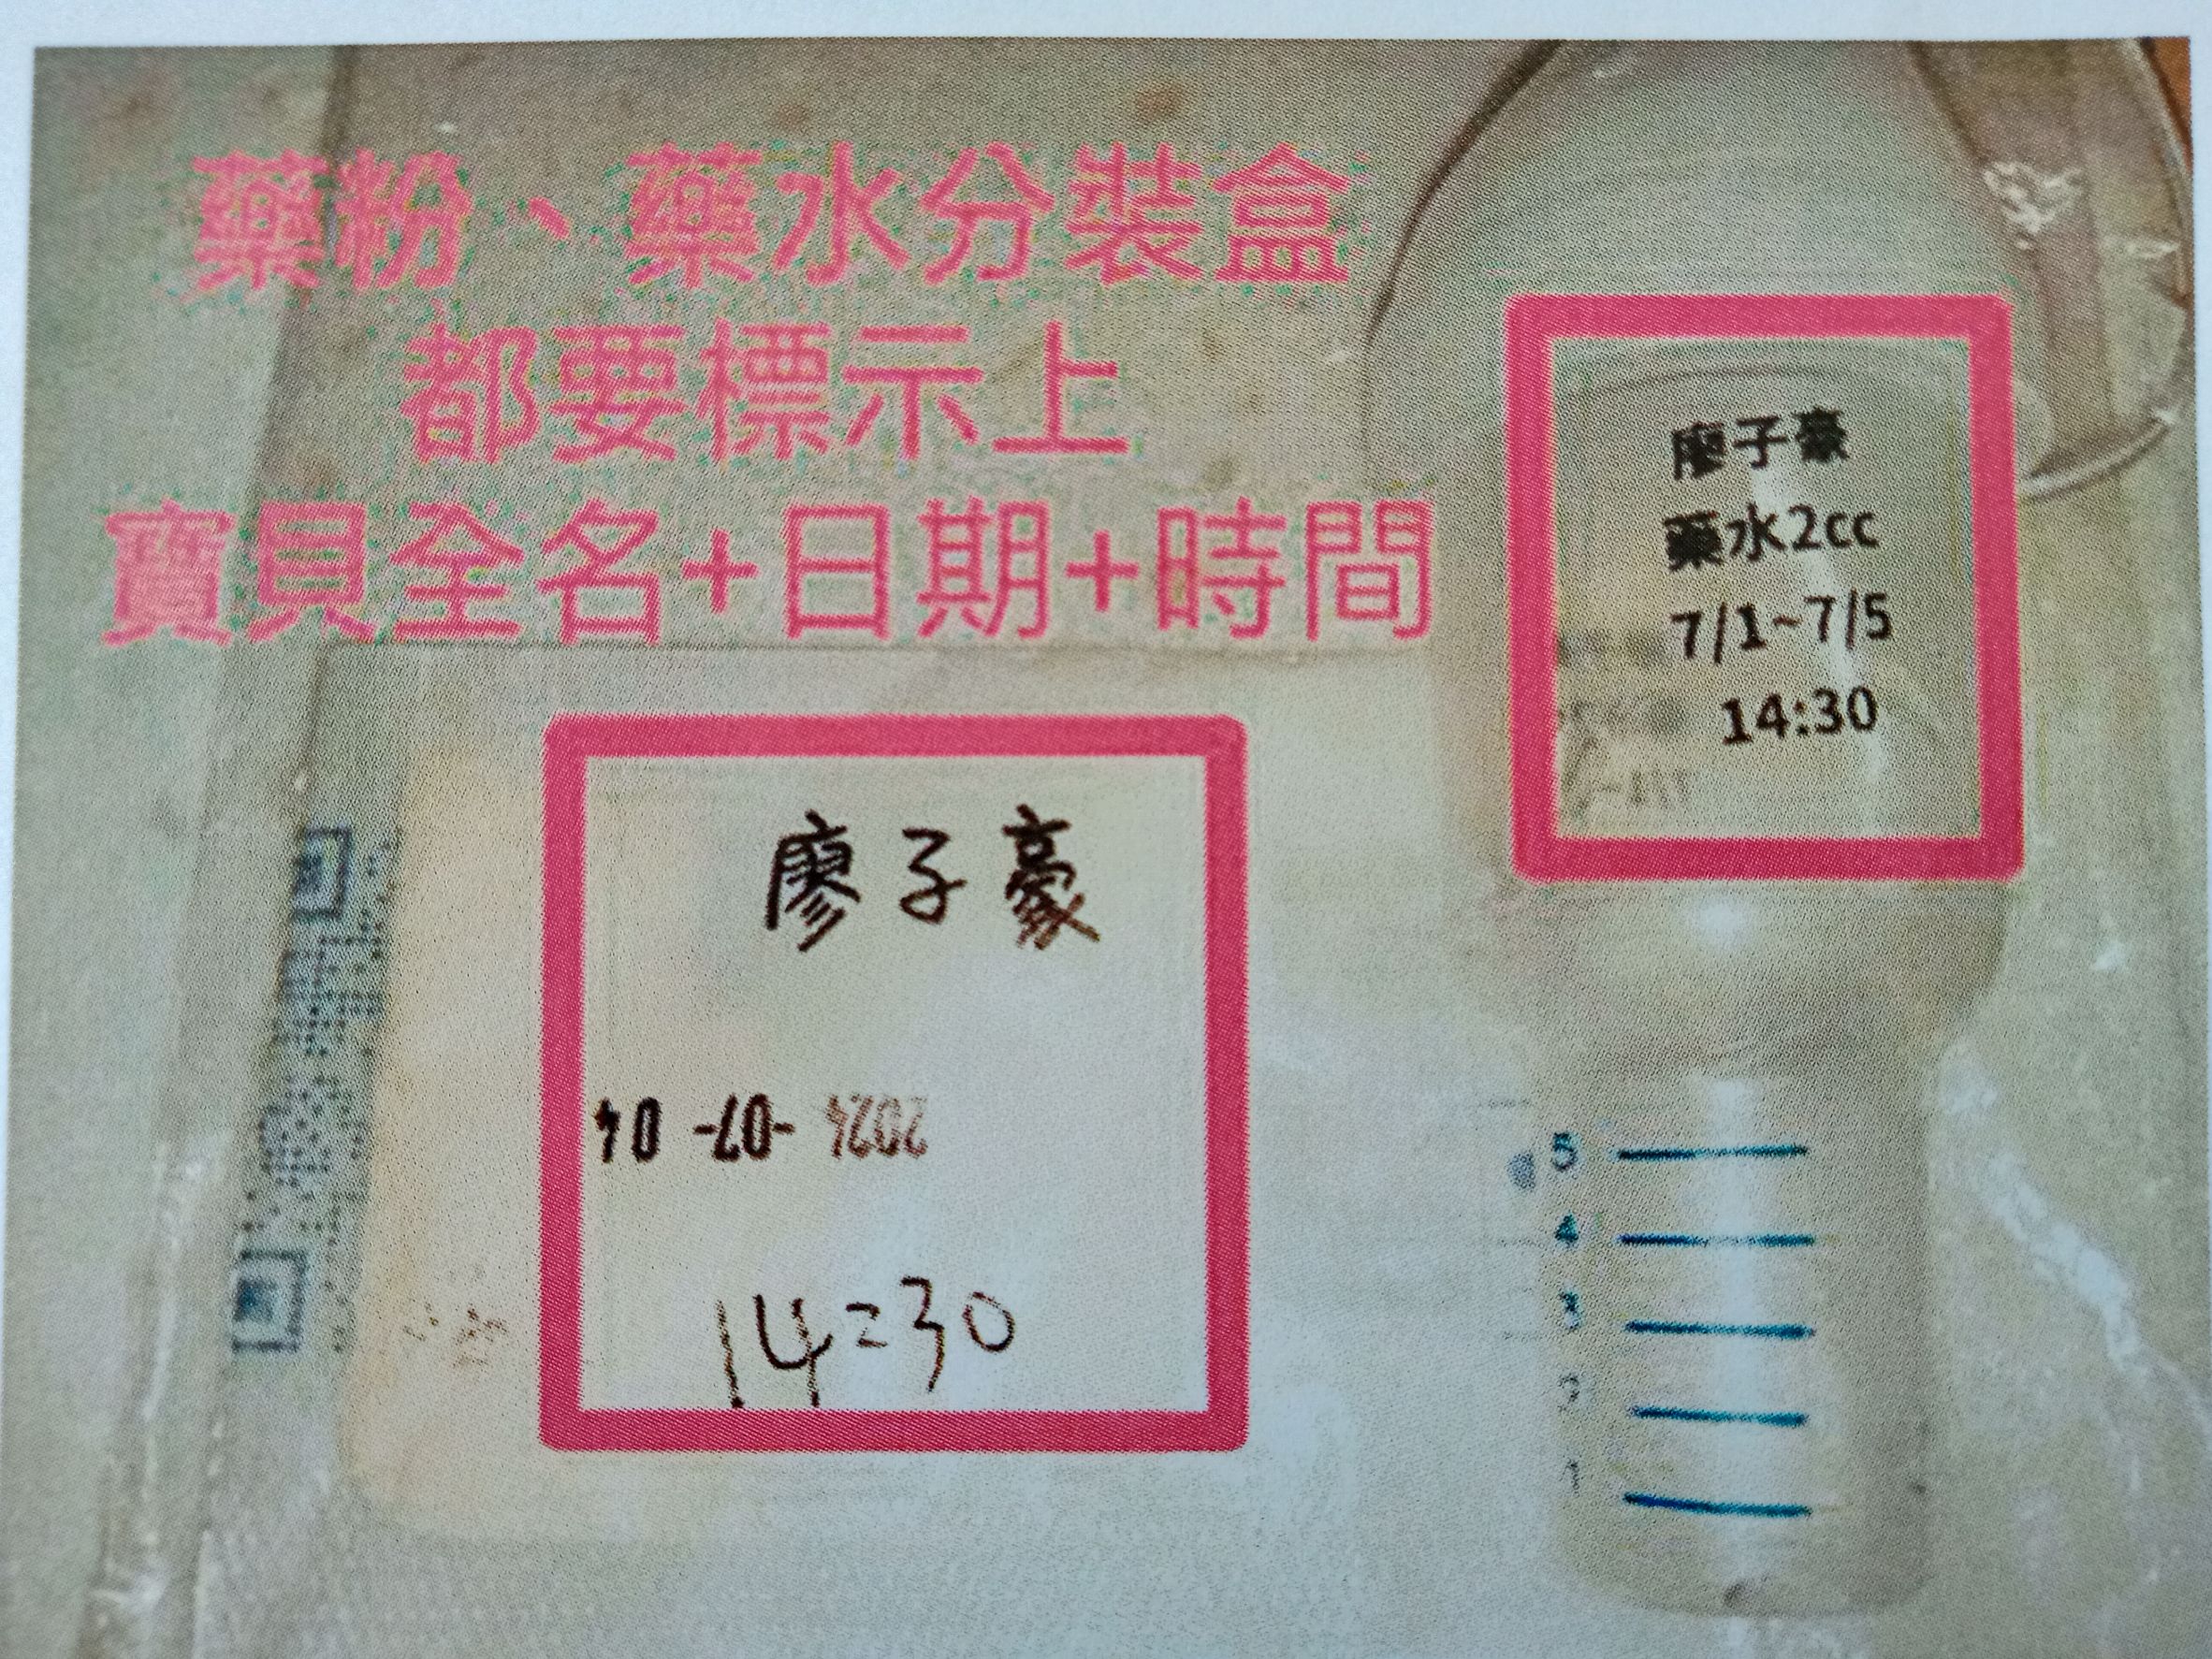 藥粉、藥水分裝盒
都要標示上
寶貝全名+日期+時間
廖子豪
藥水2cc
7/1~7/5
14:30
廖子豪
2024 -07- 04
14:30
5
4
3
2
1